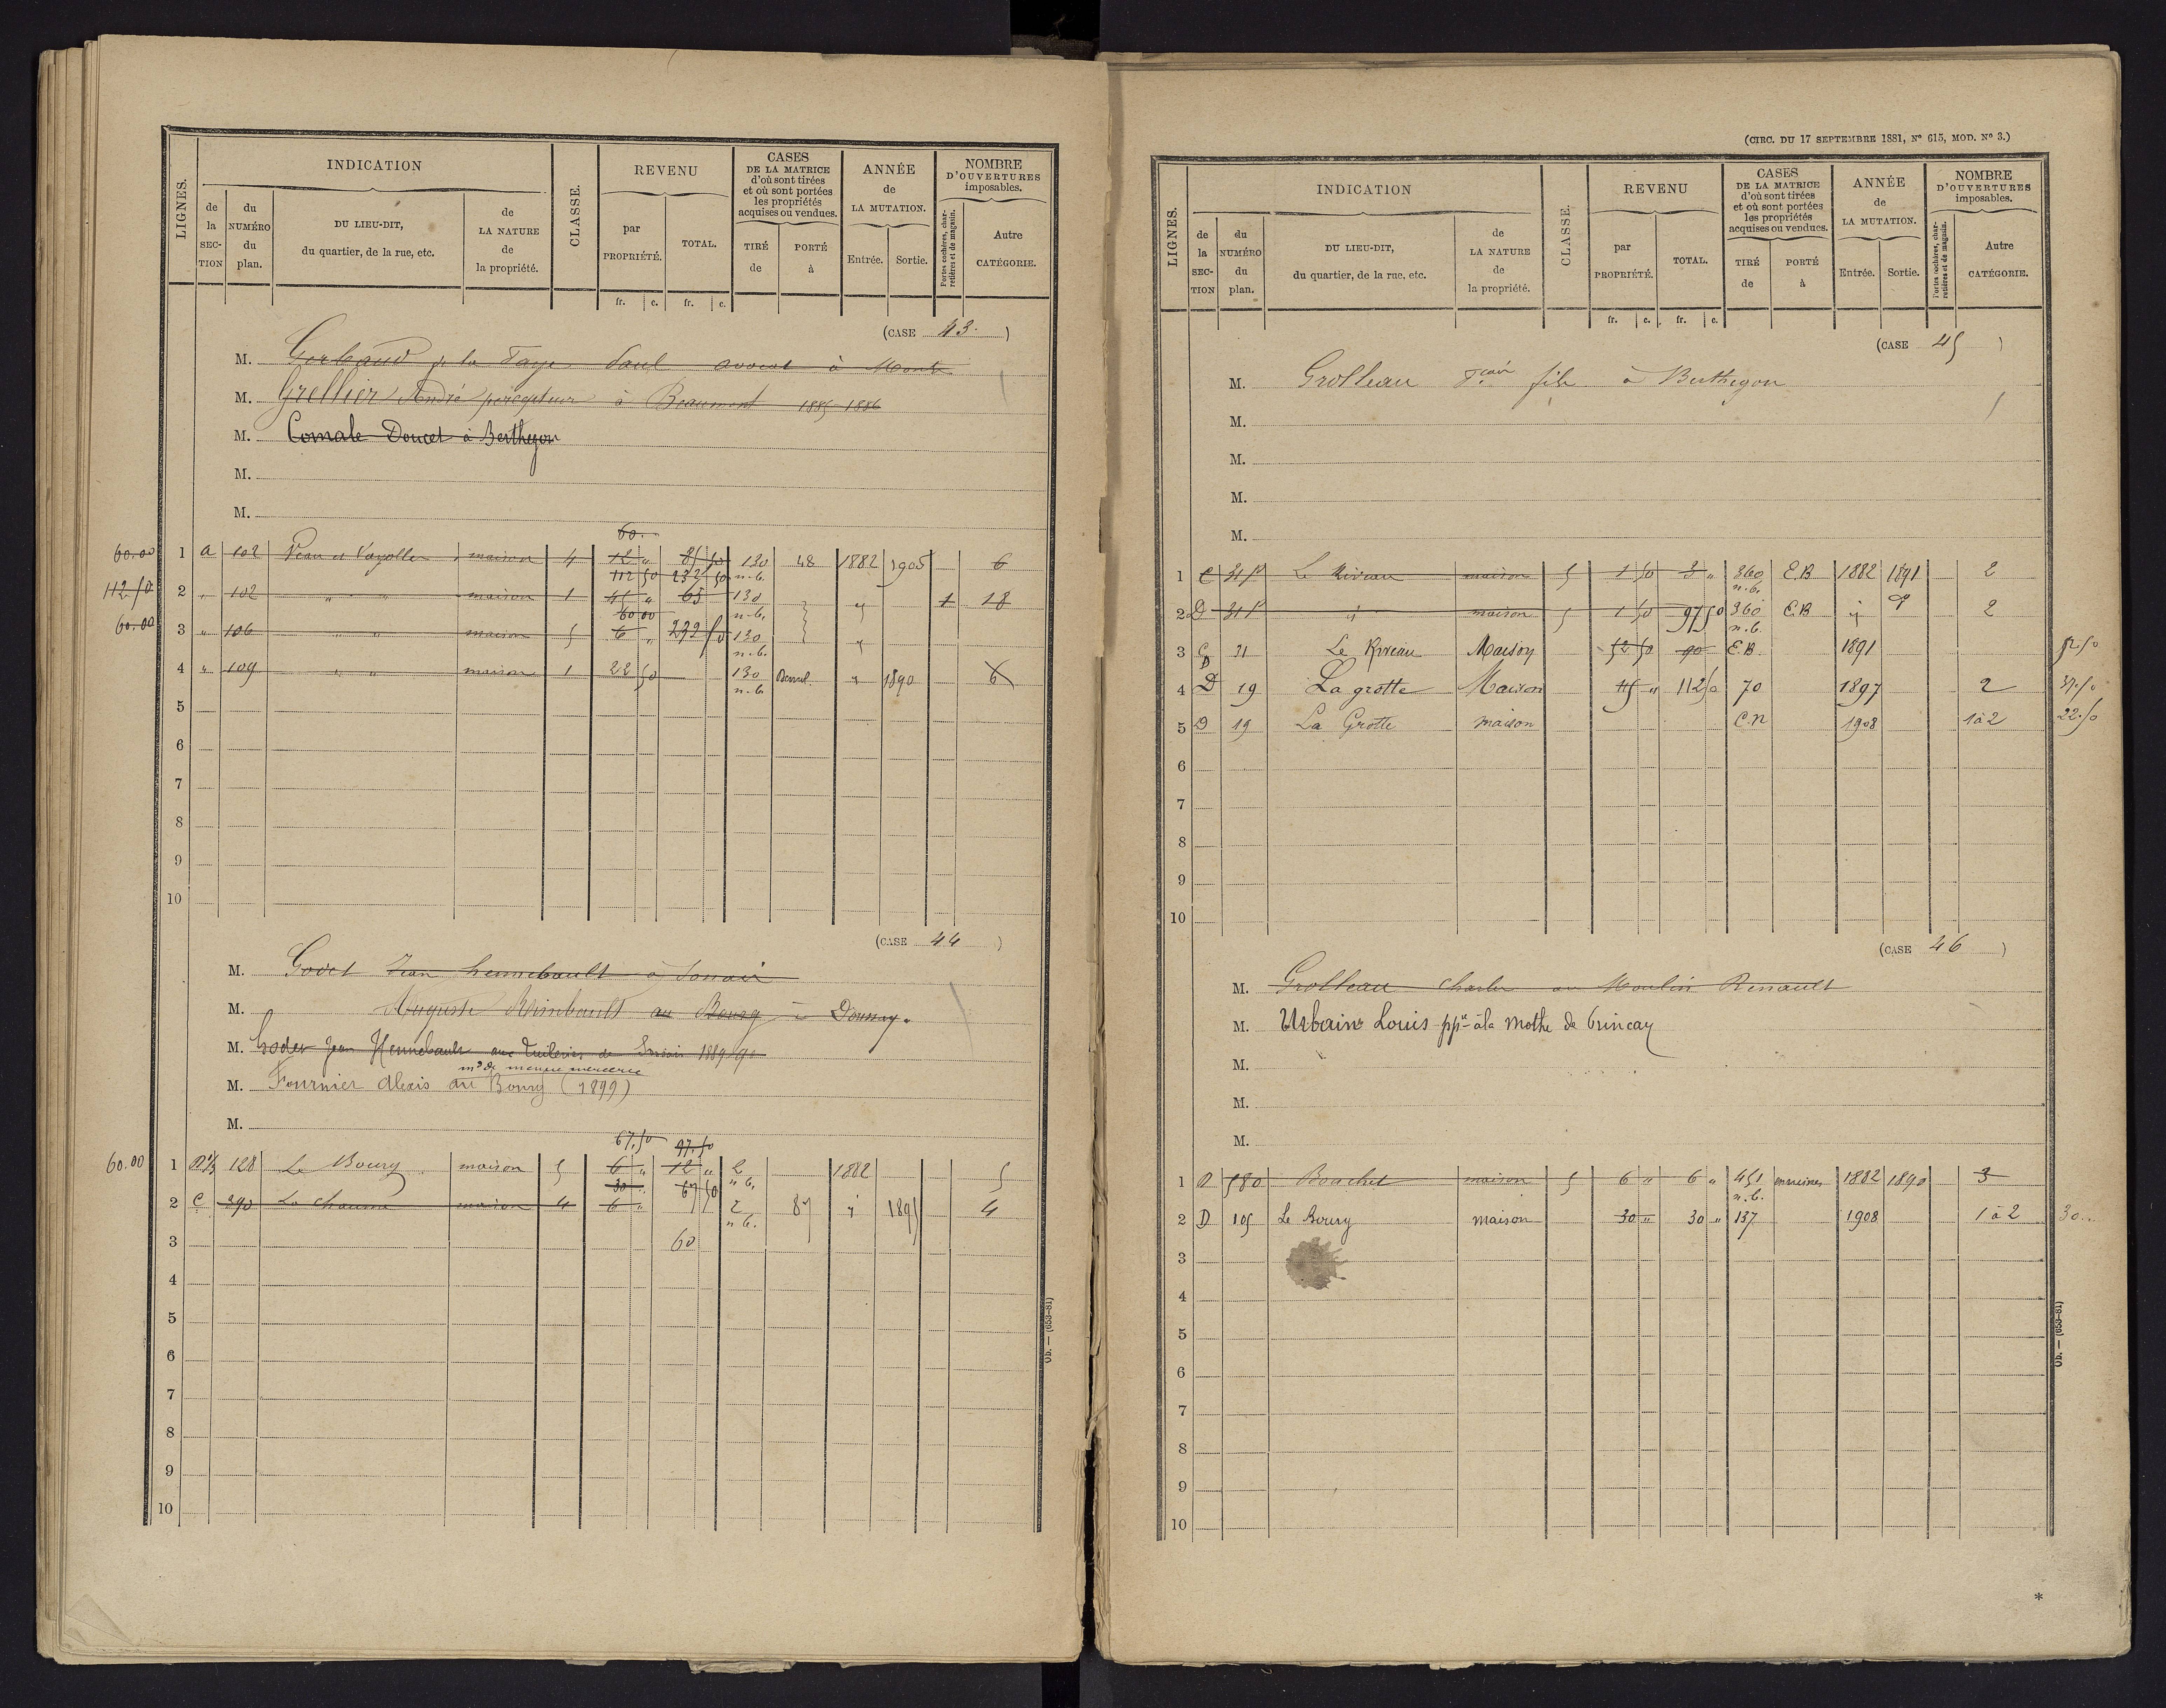 LIGNES.
INDICATION
de la SECTION
du NUMÉRO du plan.
DU LIEU-DIT, du quartier, de la rue, etc.
de LA NATURE de la propriété.
CLASSE.
REVENU
par PROPRIÉTÉ.
TOTAL.
fr. c. fr. c.
CASES DE LA MATRICE d'où sont tirées et où sont portées les propriétés acquises ou vendues.
TIRÉ de
PORTÉ à
ANNÉE de LA MUTATION.
Entrée. Sortie.
NOMBRE D'OUVERTURES imposables.
Portes cochères, charretières et de magasin.
Autre CATÉGORIE.
(CASE 43.)
M. Gerbaud de la Faye Paul avocat à
M. Grellier André percepteur à Beaumont 1885-1886
M. Doucet à Berthegon
M.
M.
60.
60.00 1 a 102 maison 4 12 " 85 50 130 48 1882 1905 6
112 50 232 50 n.b.
112.50 2 " 102 " " maison 1 45 " 65 130 " 1 18
60 00 n.b.
60.00 3 " 106 " " maison 5 6 " 292 50 130 "
n.b.
4 " 109 " " maison 1 22 50 130 " 1890 6
n.b.
5
6
7
8
9
10
(CASE 44)
M. Godet Jean hennebault à
M. Auguste Rimbault au Bourg à Doussay.
M. Jean Hennebault aux Tuileries de 1889-90
md de menue mercerie
M. Fournier Alexis au Bourg (1899)
M.
67.50 97.50
60.00 1 128 Le Bourg maison 5 6 " 12 " 2 1882 5
30 " 67 50 n.b.
2 C 390 La chaume maison 4 6 " 2 87 " 1895 4
n.b.
3 60
4
5
6
7
8
9
10
Ob. — (653-81)
(CIRC. DU 17 SEPTEMBRE 1881, N° 615, MOD. N° 3.)
LIGNES.
INDICATION
de la SECTION
du NUMÉRO du plan.
DU LIEU-DIT, du quartier, de la rue, etc.
de LA NATURE de la propriété.
CLASSE.
REVENU
par PROPRIÉTÉ.
TOTAL.
fr. c. fr. c.
CASES DE LA MATRICE d'où sont tirées et où sont portées les propriétés acquises ou vendues.
TIRÉ de
PORTÉ à
ANNÉE de LA MUTATION.
Entrée. Sortie.
NOMBRE D'OUVERTURES imposables.
Portes cochères, charretières et de magasin.
Autre CATÉGORIE.
(CASE 45)
M. Grolleau fils à Berthegon
M.
M.
M.
M.
1 C 31p Le Riveau maison 5 1 50 3 " 360 C.B 1882 1891 2
n.b.
2 D 31p " maison 5 1 50 97 50 360 C.B " " 2
n.b.
3 C D 31 Le Riveau Maison 52 50 90 C.B 1891 52.50
4 D 19 La grotte Maison 45 " 112 50 70 1897 2 37.50
5 D 19 La Grotte maison C.n 1908 1 à 2 22.50
6
7
8
9
10
(CASE 46)
M. Grolleau Charles au Moulin Renault
M. Urbain Louis ppre à la mothe de Princay
M.
M.
M.
1 D 580 Bouchet maison 5 6 " 6 " 451 1882 1890 3
n.b.
2 D 105 Le Bourg maison 30 " 30 " 137 1908 1 à 2 30..
3
4
5
6
7
8
9
10
Ob. — (653-81)
*